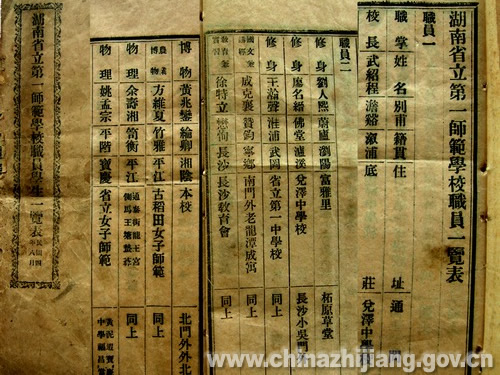 湖南省立第一師範學校職員一覽表
職員一
職掌 姓名 別甫 籍貫 住址 通
校長 武紹程 澹谿 溆浦 底莊 兌澤中學
職員二
修身 劉人熙 蔚廬 瀏陽 富雅里 柘原草堂
修身 廖名縉 佛堂 瀘溪 兌澤中學校 長沙小吳門
修身 王瀚聲 淮浦 武岡 省立第一中學校 同上
成克襄 贊鈞 寧鄉 南門外老龍潭成寓 同上
徐特立 懋恂 長沙 長沙教育會 同上
博物 黃兆 綸卿 湘陰 本校 北門外外北
農業博物 方維夏 竹雅 平江 古稻田女子師範 同上
物理 余壽湘 筠衡 平江 同上
物理 姚孟宗 平階 寶慶 省立女子師範
湖南省立第一師範學校職員學生一覽表
www.chinazhijiang.gov.cn